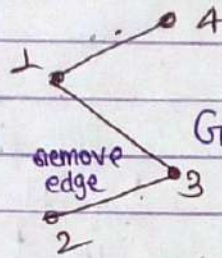 4
1
G
remove
edge
3
2